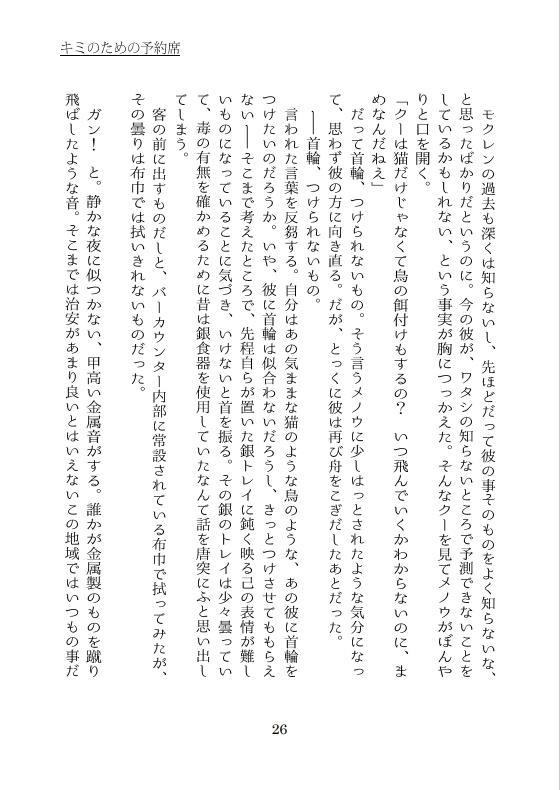 キミのための予約席
　モクレンの過去も深くは知らないし、先ほどだって彼の事そのものをよく知らないな、
と思ったばかりだというのに。今の彼が、ワタシの知らないところで予測できないことを
しているかもしれない、という事実が胸につっかえた。そんなクーを見てメノウがぼんや
りと口を開く。
「クーは猫だけじゃなくて鳥の餌付けもするの？　いつ飛んでいくかわからないのに、ま
めなんだねえ」
　だって首輪、つけられないもの。そう言うメノウに少しはっとされたような気分になっ
て、思わず彼の方に向き直る。だが、とっくに彼は再び舟をこぎだしたあとだった。
　――首輪、つけられないもの。
　言われた言葉を反芻する。自分はあの気ままな猫のような鳥のような、あの彼に首輪を
つけたいのだろうか。いや、彼に首輪は似合わないだろうし、きっとつけさせてももらえ
ない――そこまで考えたところで、先程自らが置いた銀トレイに鈍く映る己の表情が難し
いものになっていることに気づき、いけないと首を振る。その銀のトレイは少々曇ってい
て、毒の有無を確かめるために昔は銀食器を使用していたなんて話を唐突にふと思い出し
てしまう。
　客の前に出すものだしと、バーカウンター内部に常設されている布巾で拭ってみたが、
その曇りは布巾では拭いきれないものだった。
　ガン！　と。静かな夜に似つかない、甲高い金属音がする。誰かが金属製のものを蹴り
飛ばしたような音。そこまでは治安があまり良いとはいえないこの地域ではいつもの事だ
26